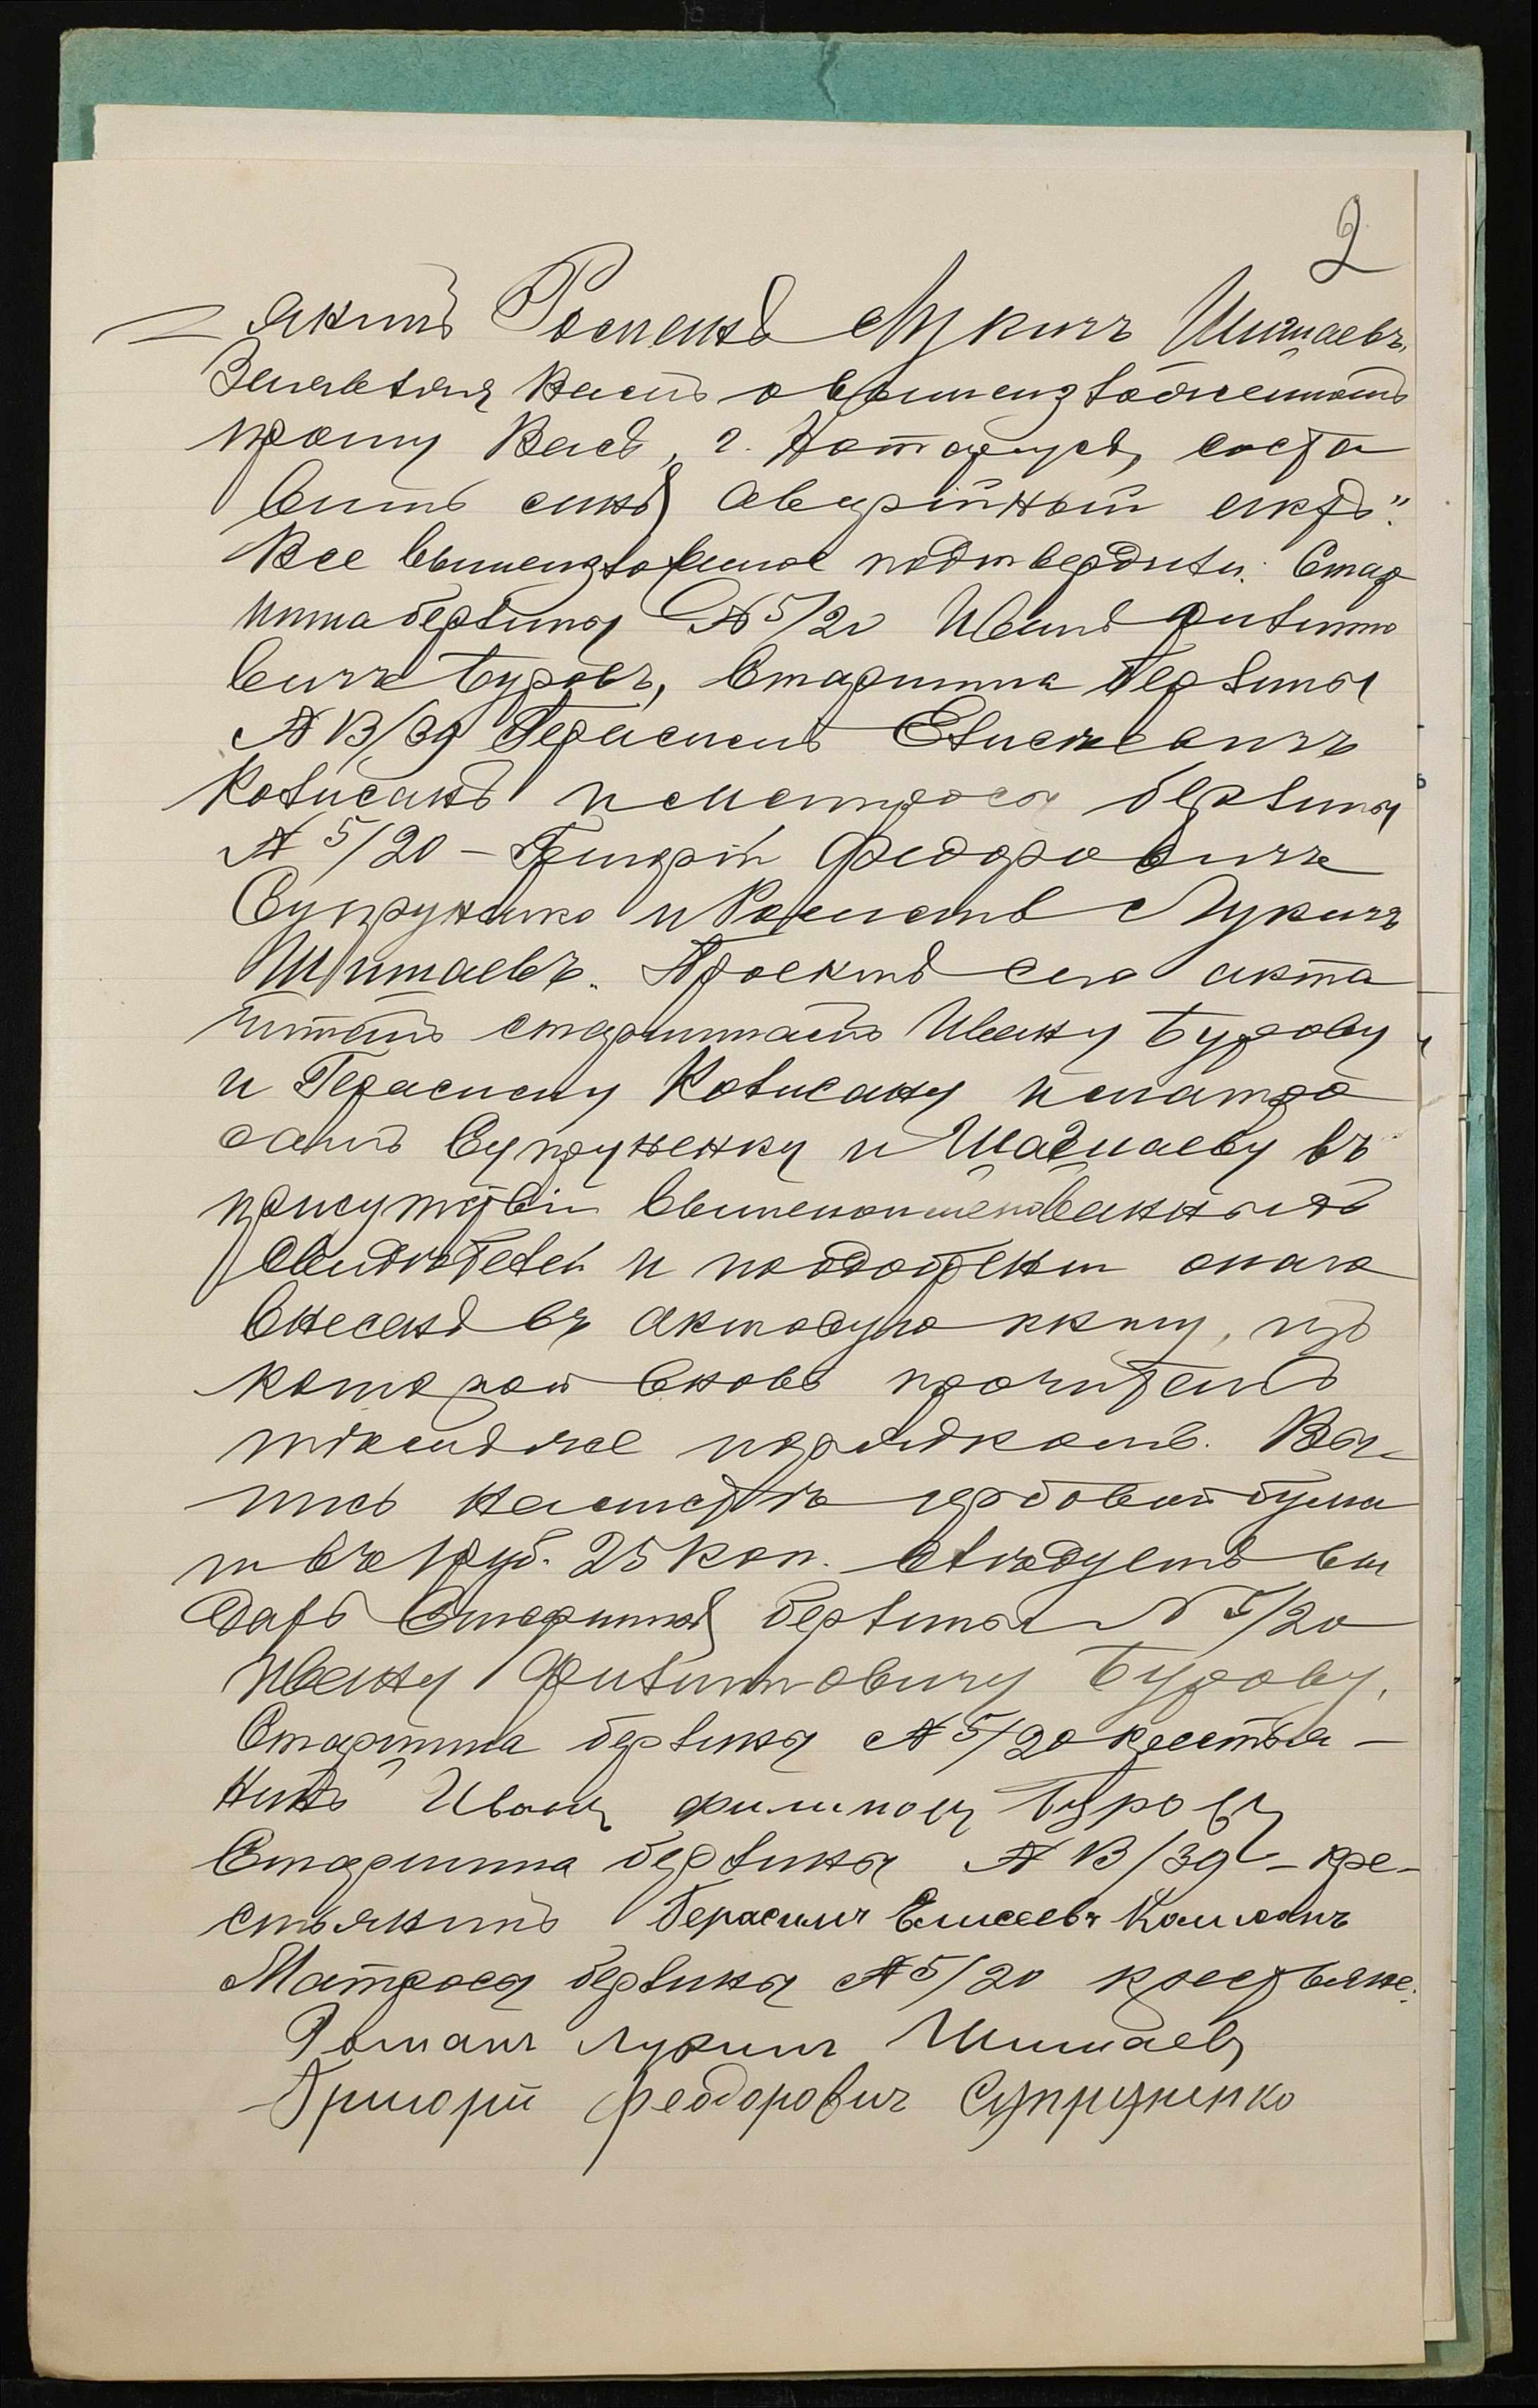 2
янинъ Романъ Лукичъ Шишаевъ.
Заявляя Вамъ о вышеизложенномъ
прошу Васъ, г. Нотаріусъ, соста
вить сей аварійный актъ".
Все вышеизложенное подтвердили: Стар
шина берлины № 5/20 Иванъ Филиппо
вичъ Буровъ, Старшина берлины
№ 13/39 Герасимъ Елисеевичъ
Колисанъ и матросы берлины
№ 5/20 – Григорій Федоровичъ
Супруненко и Романъ Лукичъ
Шишаевъ. Проектъ сего акта
читанъ старшинамъ Ивану Бурову
и Герасиму Колисану и матро
самъ Супруненку и Шишаеву въ
присутствіи вышепоименованныхъ
свидѣтелей и по одобреніи онаго
внесенъ въ актовую книгу, изъ
которой вновь прочитанъ
тѣмъ же порядкомъ. Вы-
пись на листѣ гербовой бума
ги въ 1 руб. 25 коп. слѣдуетъ вы
дать Старшинѣ берлины № 5/20
Ивану Филипповичу Бурову.
Старшина берлины № 5/20 крестья-
нинъ Иванъ Филиповъ Буровъ
Старшина берлины № 13/39 – кре-
стьянинъ Герасимъ Елисеевъ
Матросы берлины № 5/20 крестьяне:
Романъ Лукичъ Шишаевъ
Григорій Феодоровичъ Супруненко